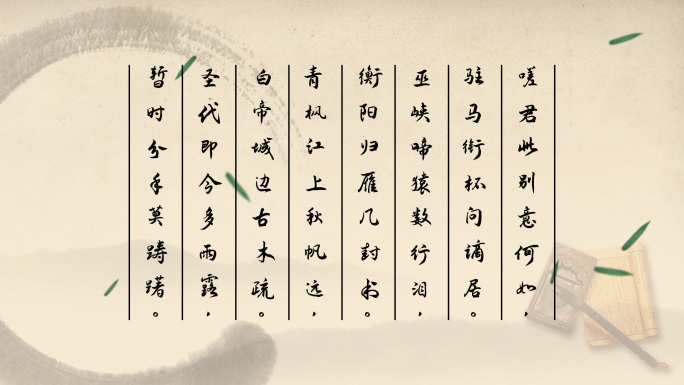 嗟君此别意何如，
驻马衔杯问谪居。
巫峡啼猿数行泪，
衡阳归雁几封书。
青枫江上秋帆远，
白帝城边古木疏。
圣代即今多雨露，
暂时分手莫踌躇。